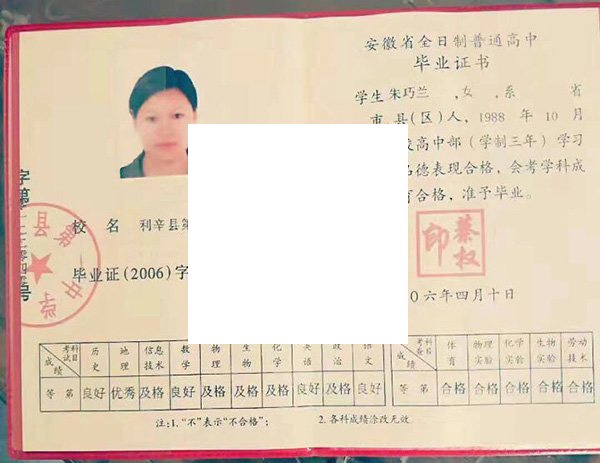 安徽省全日制普通高中
毕业证书
学生 朱巧兰 ,女,系 省
市 县(区)人, 1988 年 10 月
高中部(学制三年)学习
德表现合格,会考学科成
合格,准予毕业。
秦权印
〇六年四月十日
校 名 利辛县第
毕业证(2006)字
字第
号
考试科目 历史 地理 信息技术 数学 物理 生物 化学 英语 政治 语文
成绩等第 良好 优秀 及格 良好 及格 及格 及格 良好 及格 良好
考查科目 体育 物理实验 化学实验 生物实验 劳动技术
成绩等第 合格 合格 合格 合格 合格
注:1. “不”表示“不合格”; 2. 各科成绩涂改无效.